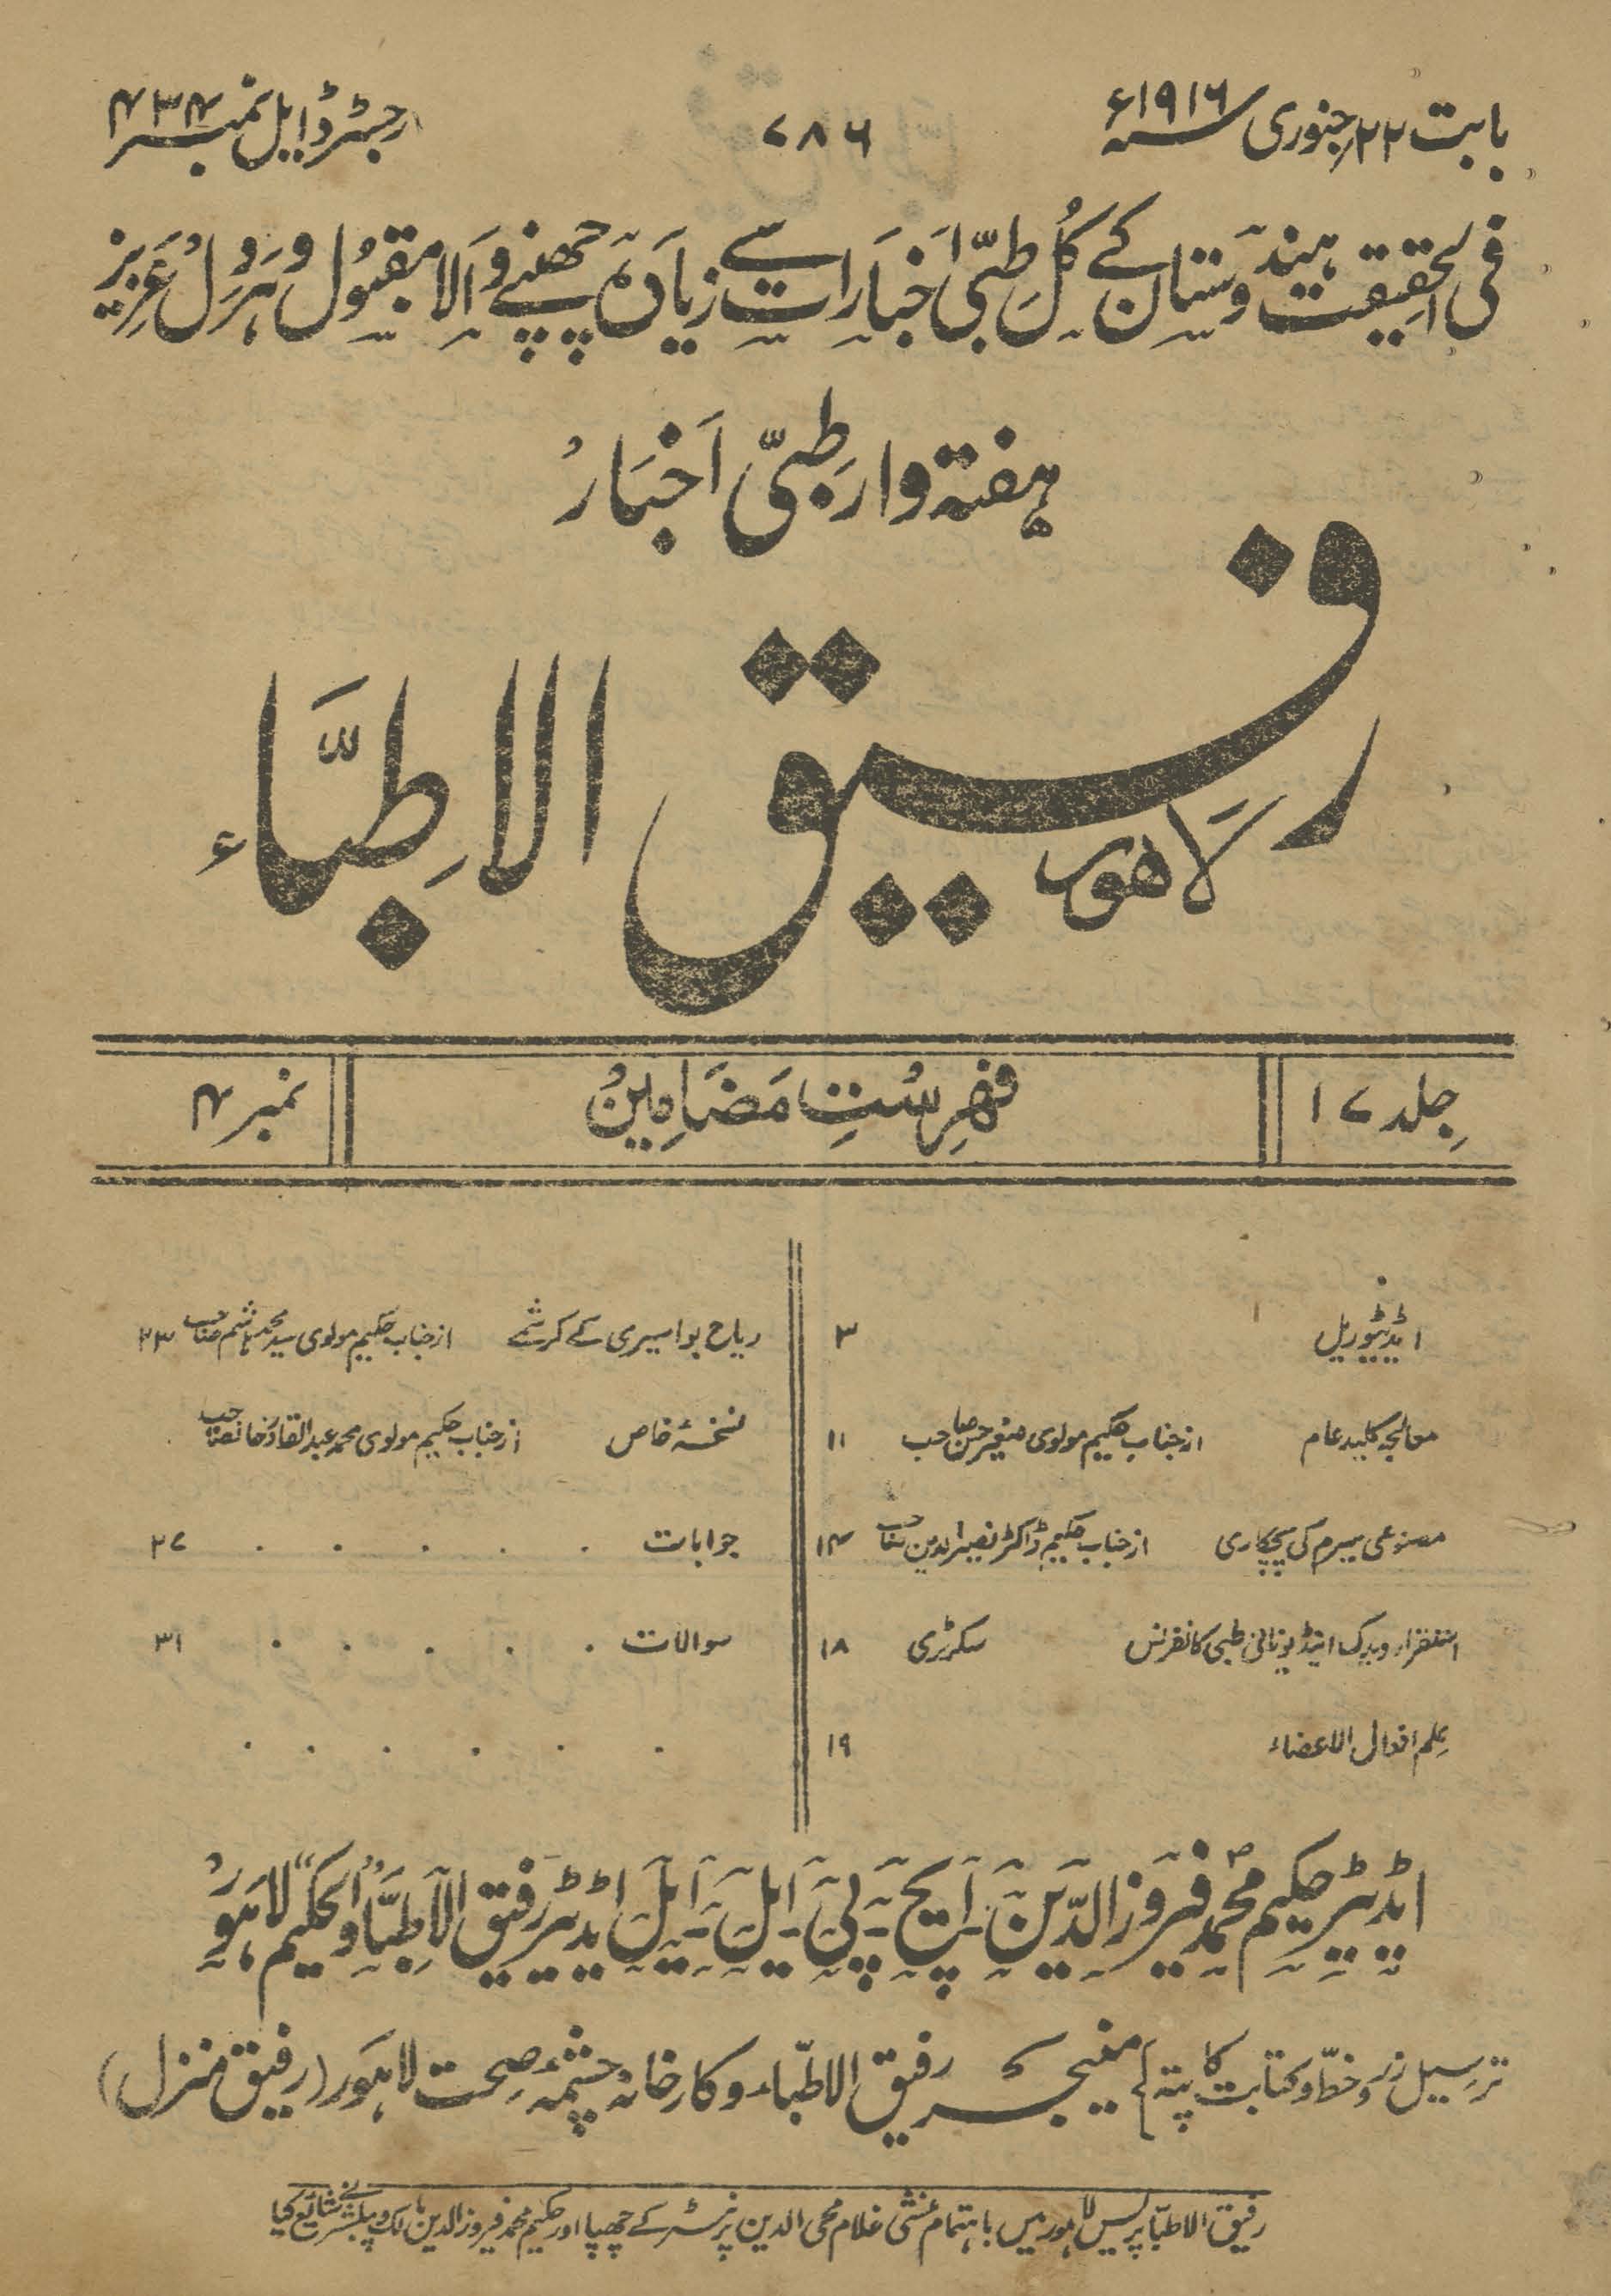 بابت ۲۲؍جنوری سنہ ۱۹۱۶ء
۷۸۶
رجسٹرڈ ایل نمبر ۴۳۴
فی الحقیقت ہندوستان کے کل طبّی اخبارات سے زیادہ چھپنے والا مقبول و ہردلعزیز
ہفتہ وار طبّی اخبار
رفیق الاطبّاء
لاہور
جلد ۱۷
فہرست مضامین
نمبر ۴
اڈیٹوریل ۳
معالجہ کلید عام از جناب حکیم مولوی صغیر حسن صاحب ۱۱
مصنوعی سیرم کی پچکاری از جناب حکیم ڈاکٹر نصیر الدین صاحب ۱۴
ویدک اینڈ یونانی طبی کانفرنس سکرٹری ۱۸
علم افعال الاعضاء ۱۹
ریاح بواسیری کے کرشمے از جناب حکیم مولوی سید محمد ہاشم صاحب ۲۳
نسخۂ خاص از جناب حکیم مولوی محمد عبدالقادر خانصاحب
جوابات . . . . . ۲۷
سوالات . . . . . ۳۱
. . . . . .
اڈیٹر حکیم محمد فیروز الدین ۔ ایچ ۔ پی ۔ ایل ۔ ایل اڈیٹر رفیق الاطبّا و الحکیم لاہور
ترسیل زر و خط و کتابت کا پتہ } منیجر رفیق الاطبّاء و کارخانہ چشمۂ صحت لاہور (رفیق منزل)
رفیق الاطبّا پریس لاہور میں باہتمام منشی غلام محی الدین پرنٹر کے چھپا اور حکیم محمد فیروز الدین مالک و پبلشر نے شائع کیا